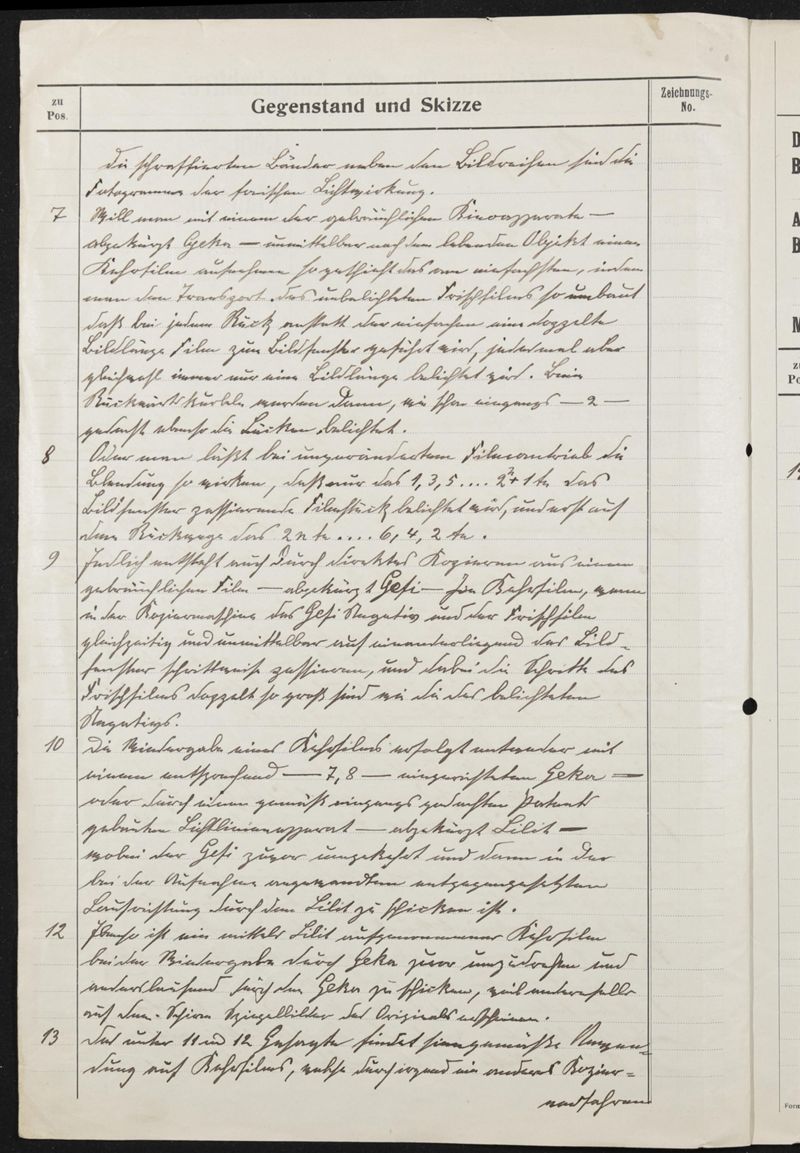 zu Pos.
Gegenstand und Skizze
Zeichnungs-No.
Die schraffierten Bänder neben den Bildreihen sind die
Fotogramme der tonischen Lichtwirkung.
7 Will man mit einem der gebräuchlichen Kinoapparate —
abgekürzt Geka — unmittelbar nach dem lebenden Objekt einen
Kehrfilm aufnehmen so geschieht das am einfachsten, indem
man den Transport des unbelichteten Frischfilms so umbaut
daß bei jedem Ruck anstatt der einfachen eine doppelte
Bildlänge Film zum Bildfenster geführt wird, jedesmal aber
gleichwohl immer nur eine Bildlänge belichtet wird. Beim
Rückwärtskurbeln werden dann, wie schon eingangs — 2 —
gedacht ebenso die Lücken belichtet.
8 Oder man läßt bei unverändertem Filmantrieb die
Blendung so wirken, daß nur das 1, 3, 5 .... 2n + 1te das
Bildfenster passierende Filmstück belichtet wird, und erst auf
dem Rückwege das 2nte .... 6, 4, 2te.
9 Endlich entsteht auch durch direktes Kopieren aus einem
gebräuchlichen Film — abgekürzt Gefi — ein Kehrfilm, wenn
in der Kopiermaschine das Gefi Negativ und der Frischfilm
gleichzeitig und unmittelbar aufeinanderliegend das Bild-
fenster schrittweise passieren, und dabei die Schritte des
Frischfilms doppelt so groß sind wie die des belichteten
Negativs.
10 Die Wiedergabe eines Kehrfilms erfolgt entweder mit
einem entsprechend — 7, 8 — eingerichteten Geka —
oder durch einen gemäß eingangs gedachten Patents
gebauten Lichtlinienapparat — abgekürzt Lilit —
wobei der Gefi zuvor umgekehrt und dann in der
bei der Aufnahme angewandten entgegengesetzten
Laufrichtung durch den Lilit zu schicken ist.
12 Ebenso ist ein mittels Lilit aufgenommener Kehrfilm
bei der Wiedergabe durch Geka zuvor umzudrehen und
anderslaufend durch den Geka zu schicken, weil anderenfalls
auf dem Schirm Spiegelbilder des Originals erscheinen.
13 Das unter 11 und 12 Gesagte findet sinngemäße Anwen-
dung auf Kehrfilms, welche durch irgend ein anderes Kopier-
verfahren